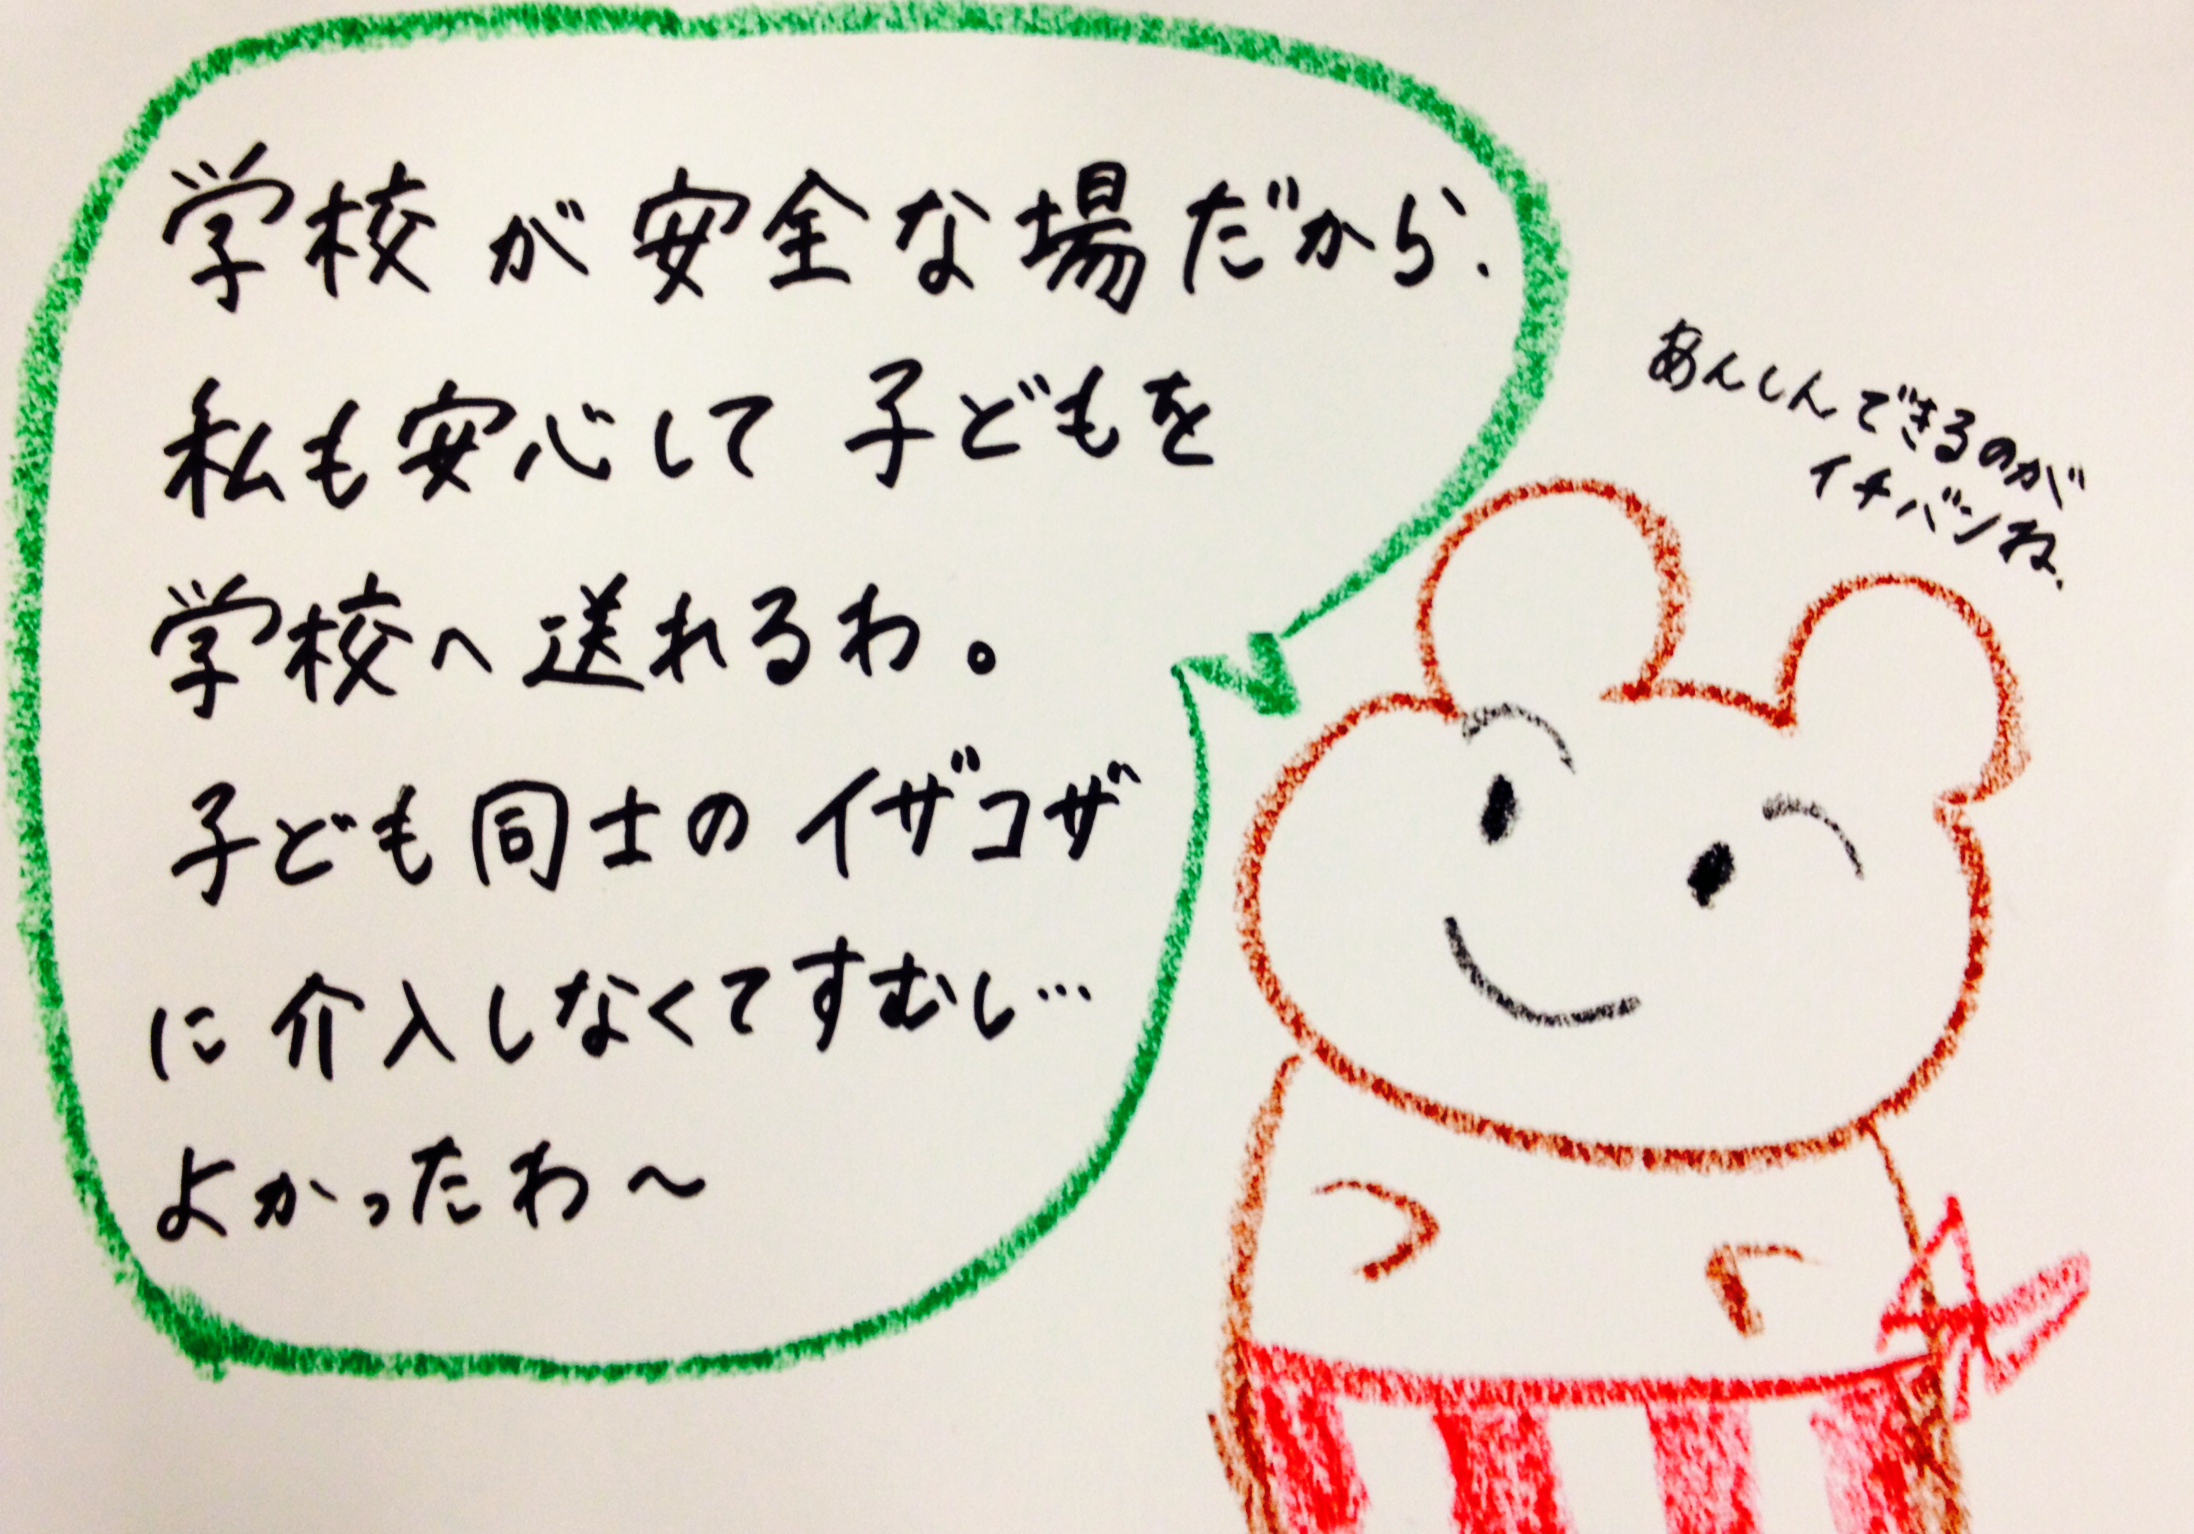 学校が安全な場だから、
私も安心して子どもを
学校へ送れるわ。
子ども同士のイザコザ
に介入しなくてすむし…
よかったわ～
あんしんできるのが
イチバンね、